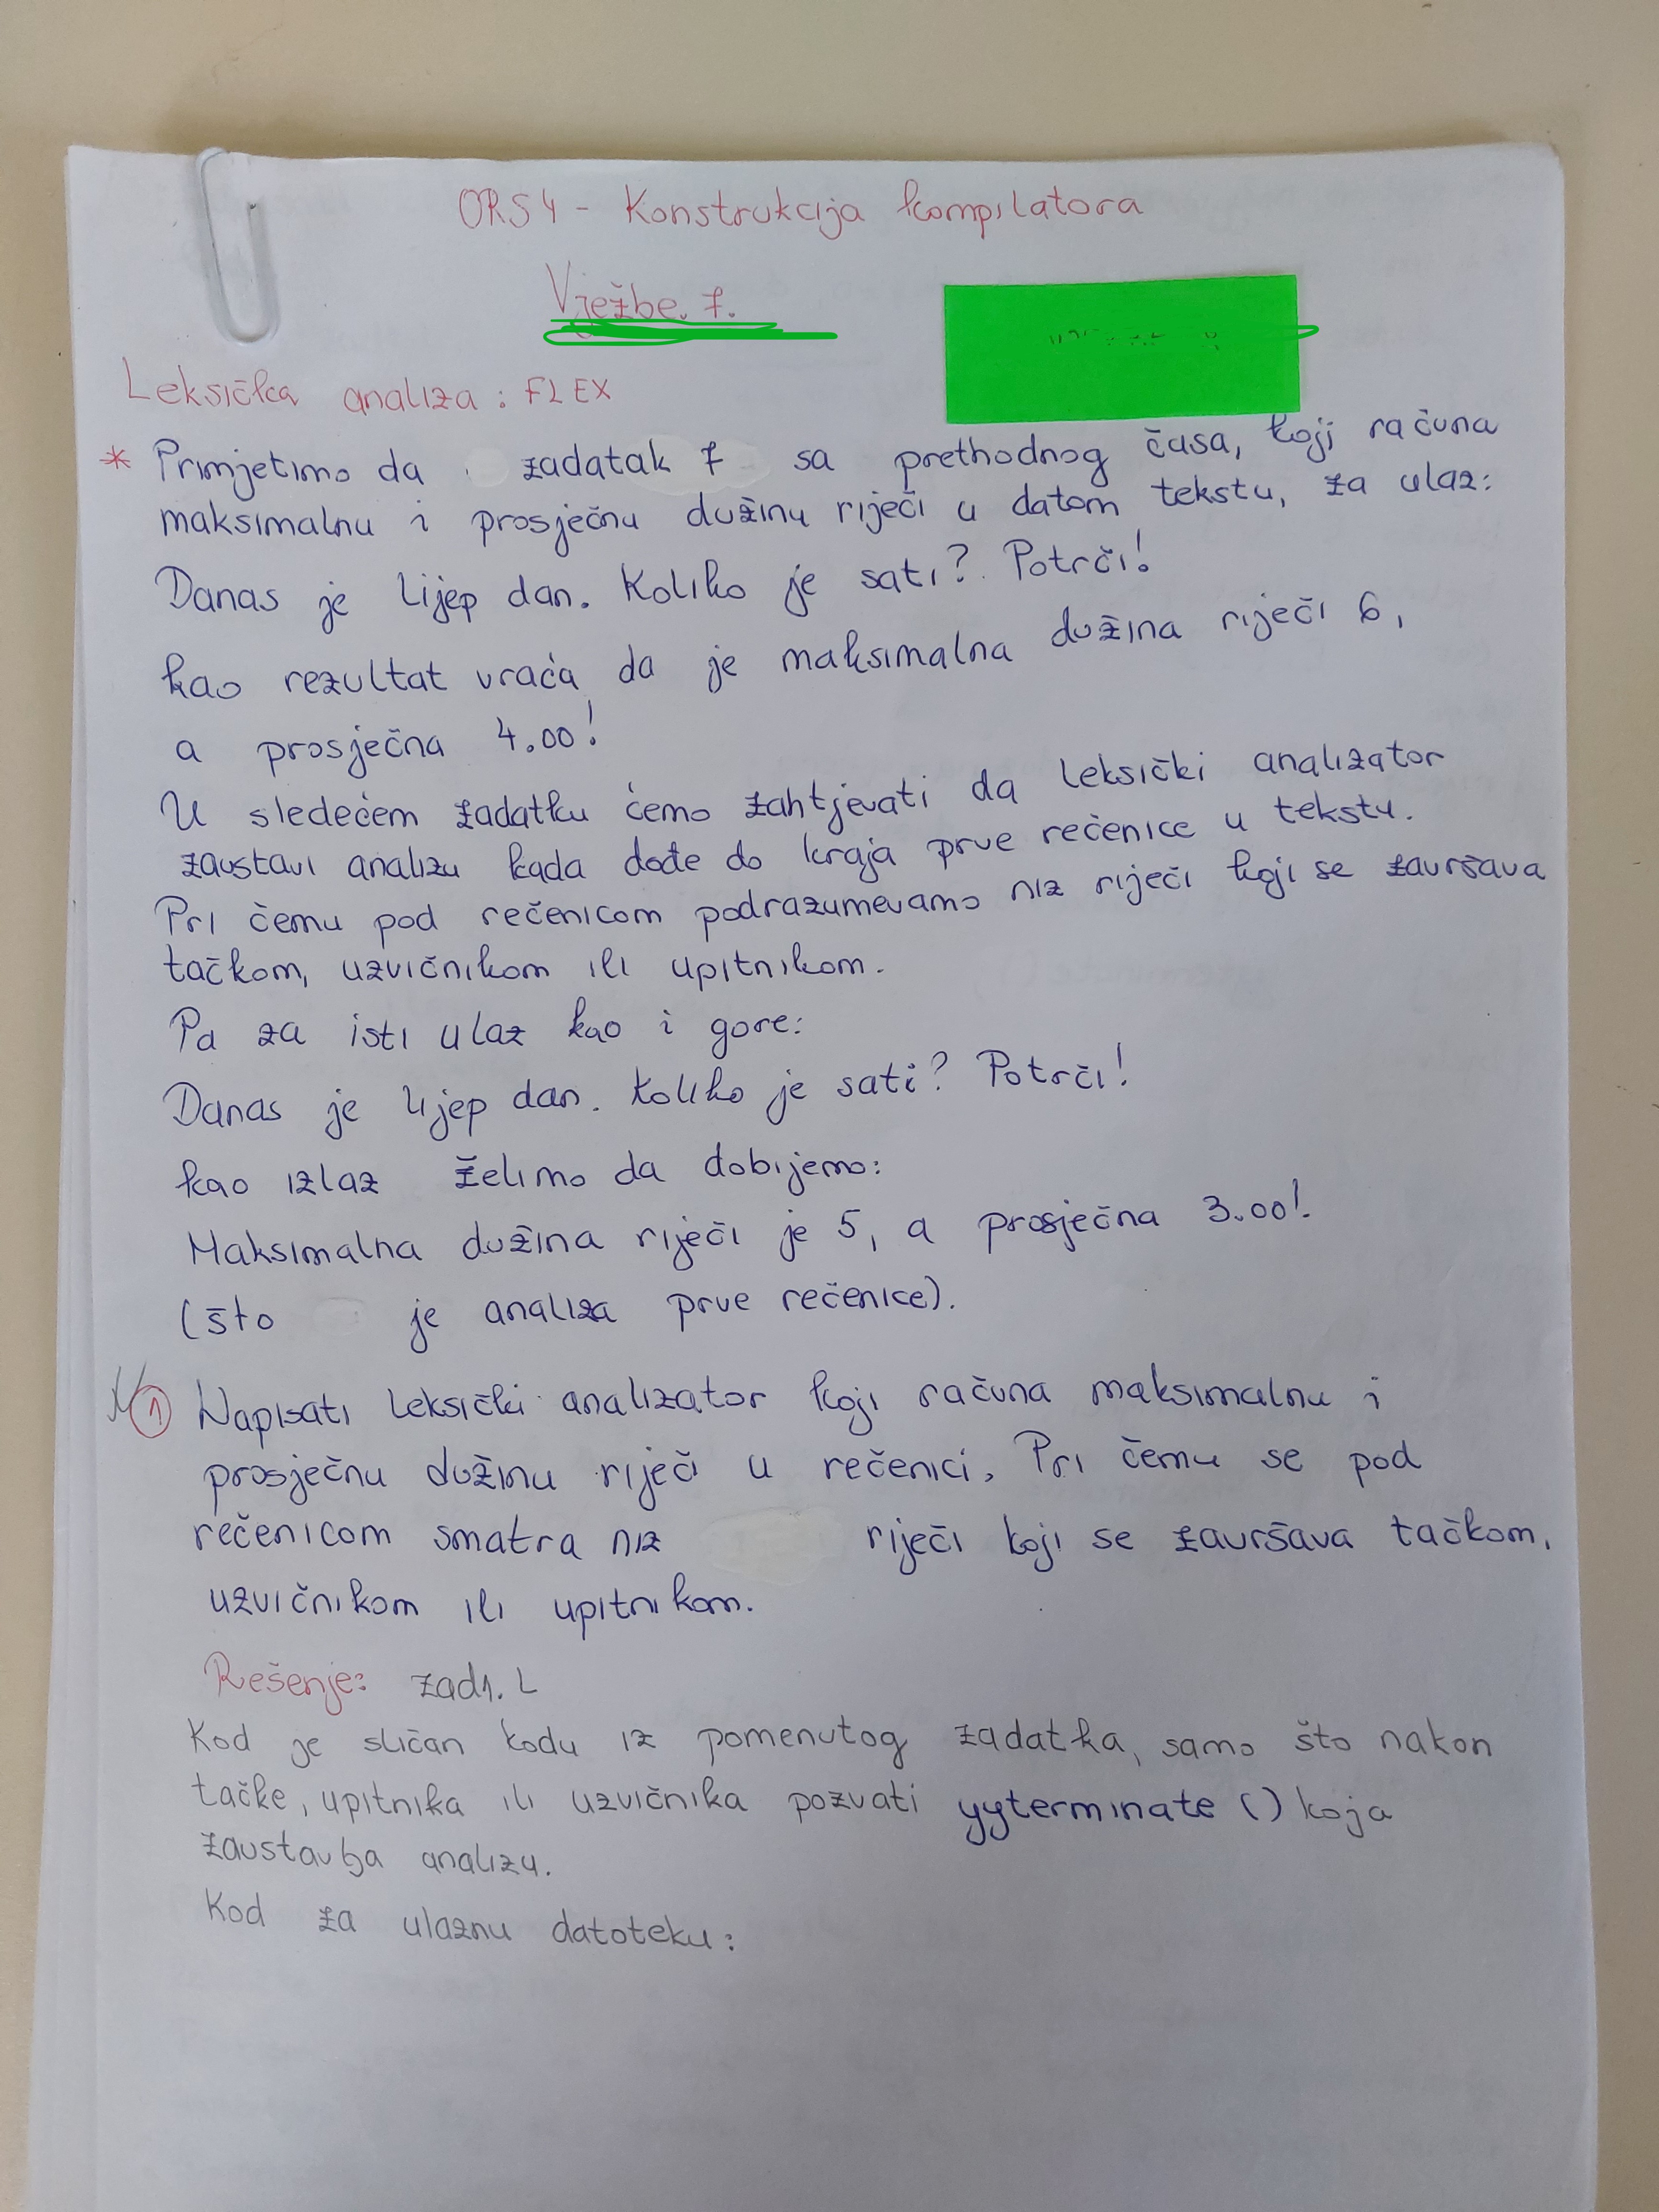 ORS4 - Konstrukcija kompilatora
Vježbe. 7.
Leksička analiza: FLEX
* Primjetimo da zadatak 7 sa prethodnog časa, koji računa
maksimalnu i prosječnu dužinu riječi u datom tekstu, za ulaz:
Danas je lijep dan. Koliko je sati? Potrči!
kao rezultat vraća da je maksimalna dužina riječi 6,
a prosječna 4.00!
U sledećem zadatku ćemo zahtjevati da leksički analizator
zaustavi analizu kada dođe do kraja prve rečenice u tekstu.
Pri čemu pod rečenicom podrazumevamo niz riječi koji se završava
tačkom, uzvičnikom ili upitnikom.
Pa za isti ulaz kao i gore:
Danas je lijep dan. Koliko je sati? Potrči!
kao izlaz želimo da dobijemo:
Maksimalna dužina riječi je 5, a prosječna 3.00!
(što je analiza prve rečenice).
1 Napisati leksički analizator koji računa maksimalnu i
prosječnu dužinu riječi u rečenici. Pri čemu se pod
rečenicom smatra niz riječi koji se završava tačkom,
uzvičnikom ili upitnikom.
Rešenje: zad1.L
Kod je sličan kodu iz pomenutog zadatka, samo što nakon
tačke, upitnika ili uzvičnika pozvati yyterminate () koja
zaustavlja analizu.
Kod za ulaznu datoteku: